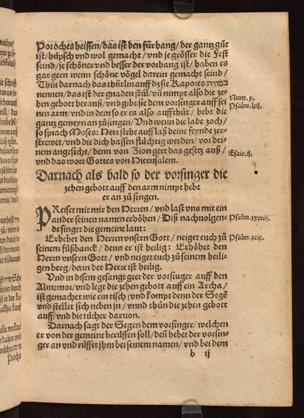 Porochos heissen/das ist den fürhang/der gang gůt
ist/hübsch und wol gemacht/und je grösser die Fest
seind/je schöner und besser der vorhang ist/haben es
gar gern wenn schöne vögel darein gemacht seind/
Thůt darnach das thürlin auff dz sie Kapores
nennen/das ist der gnaden stůl/und nimpt also die ze=
hen gebott her auß/und gibt sie dem vorsinger auff sei
nen arm/und in dem so er es also auffhůt/hebt die
gantz gemeyn an zů singen/Und wenn die lade zoch/
so sprach Moses: Herr stehe auff/laß deine feynde zer=
strewet/und die dich hassen flüchtig werden/vor dei=
nem angesicht/denn von Zion geet das gesetz auß/
und das wort Gottes von Hierusalem.
Num. x.
Esaie. ij.
Darnach als bald so der vorsinger die
zehen gebott auff den arm nimpt hebt
er an zů singen.
PReiset mit mir den Herren/und laßt uns mit ein
ander seinen namen erhöhen/Diß nachvolgen=
de singet die gemeine laut:
Psalm. xxxiiij.
Erhebet den Herren unsern Gott/neiget euch zů
seinem fůßbanck/denn er ist heilig: Erhöhet den
Herrn unsern Gott/und neiget euch zů seinem heili=
gen berg/dann der Herr ist heilig.
Psalm. xcix.
Und in disem gesang geet der vorsinger auff den
Almemor/und legt die zehen gebott auff ein Archa/
ist gemachet wie ein tisch/und kompt denn der Segē
und stellet sich neben in/unnd thůn die zehen gebott
auff/und die tücher darvon.
Darnach sagt der Segen dem vorsinger/welchen
er von der gemein berüffen soll/deñ hebet der vorsin=
ger an und rüffet jhm bei seinem namen/und bei dem
b ij